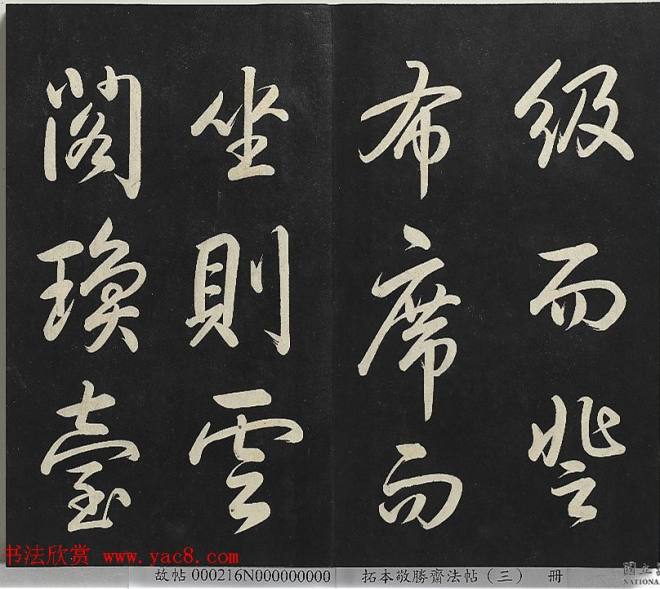 級而登
布席而
坐則雲
閣瓊臺
书法欣赏 www.yac8.com
故帖 000216N000000000 拓本敬勝齋法帖（三） 册
國立
NATIONA